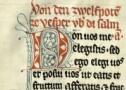 Von den zwelfpoten
ze vesper vb de salm
Non uos me
elegistis. sed
ego elegi uos
et posui uos ut eatis et
fructum afferatis et fruc